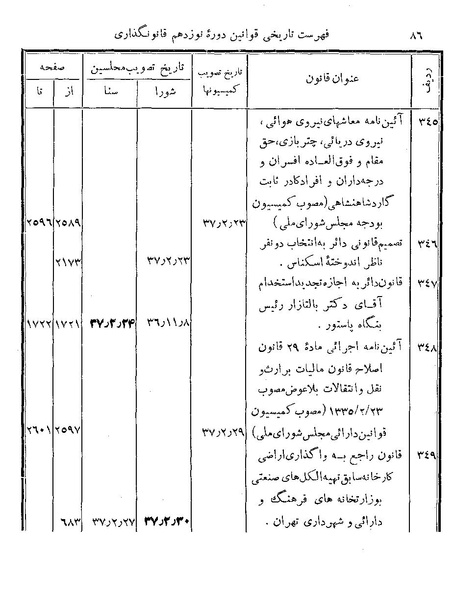 ۸۶ فهرست تاریخی قوانین دورهٔ نوزدهم قانونگذاری
ردیف عنوان قانون تاریخ تصویب کمیسیونها تاریخ تصویب مجلسین صفحه
شورا سنا از تا
۳۴۵ آئین‌نامه معاشهای نیروی هوائی ،
نیروی دریائی، چتربازی، حق
مقام و فوق‌العاده افسران و
درجه‌داران و افراد کادر ثابت
گارد شاهنشاهی (مصوب کمیسیون
بودجه مجلس شورای ملی) ۳۷٫۲٫۲۳ ۲۵۸۹ ۲۵۹۶
۳۴۶ تصمیم قانونی دائر به انتخاب دو نفر
ناظر اندوختهٔ اسکناس . ۳۷٫۲٫۲۳ ۲۱۷۳
۳۴۷ قانون دائر به اجازه تجدید استخدام
آقای دکتر بالتازار رئیس
بنگاه پاستور . ۳۶٫۱۱٫۸ ۳۷٫۲٫۲۴ ۱۷۲۱ ۱۷۲۲
۳۴۸ آئین‌نامه اجرائی مادهٔ ۲۹ قانون
اصلاح قانون مالیات بر ارث و
نقل و انتقالات بلاعوض مصوب
۱۳۳۵/۲/۲۳ (مصوب کمیسیون
قوانین دارائی مجلس شورای ملی) ۳۷٫۲٫۲۹ ۲۵۹۷ ۲۶۰۱
۳۴۹ قانون راجع بـه واگذاری اراضی
کارخانه سابق تهیه الکل‌های صنعتی
بوزارتخانه های فرهنگ و
دارائی و شهرداری تهران . ۳۷٫۲٫۳۰ ۳۷٫۲٫۲۷ ۶۸۳